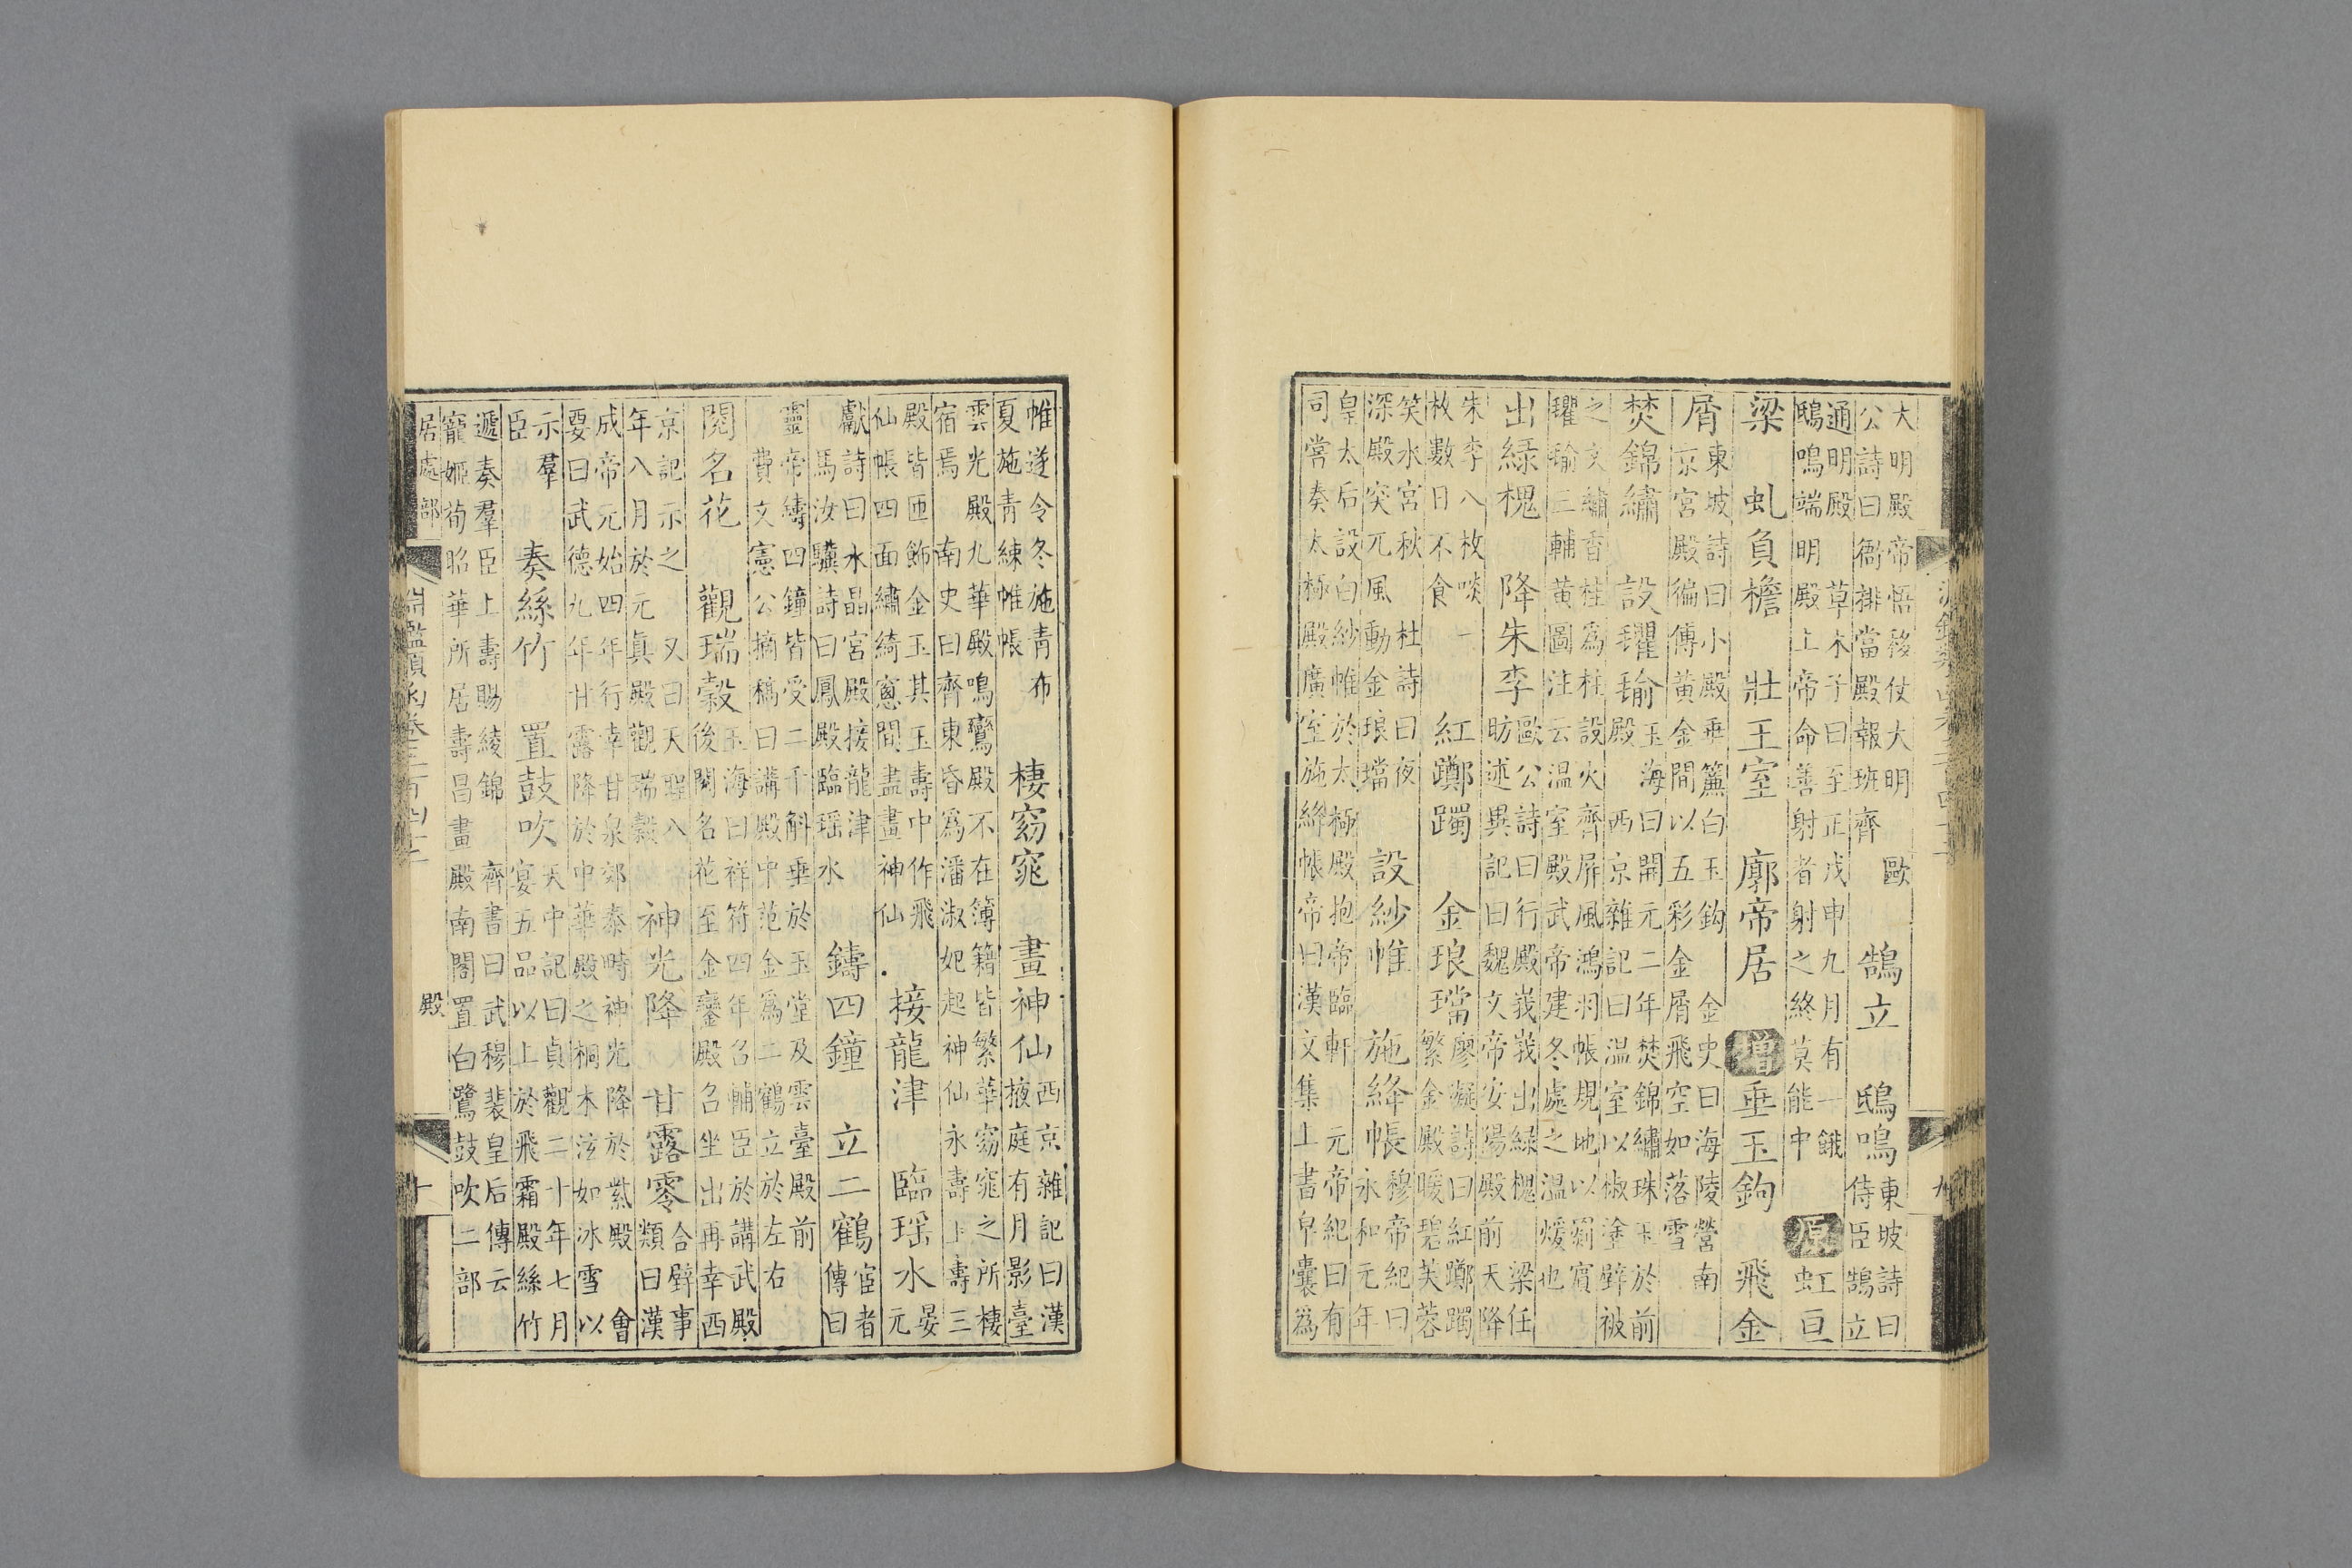 大明殿帝悟移仗大明 歐
公詩曰衙排當殿報班齊
鵠立 鴟鳴
東坡詩曰
侍臣鵠立
通明殿 草木子曰至正戊申九月有一鵝
鴟鳴端明殿上帝命善射者射之終莫能中
原 虹亘
梁 虬負檐 壯王室 廓帝居 增 垂玉鉤 飛金
屑
東坡詩曰小殿垂簾白玉鈎 金史曰海陵營南
京宮殿徧傅黄金間以五彩金屑飛空如落雪
焚錦繡 設瓘瑜
玉海曰開元二年焚錦繡珠玉於前
殿 西京雜記曰温室以椒塗壁被
之文繡香桂為柱設火齊屏風鴻羽帳規地以罽賓
瓘瑜三輔黄圖注云温室殿武帝建冬處之温煖也
出綠槐 降朱李
歐公詩曰行殿峩峩出緑槐 梁任
昉述異記曰魏文帝安陽殿前天降
朱李八枚啖一
枚數日不食
紅躑躅 金琅璫
廖凝詩曰紅躑躅
繁金殿暖碧芙蓉
笑水宮秋 杜詩曰夜
深殿突兀風動金琅璫
設紗帷 施絳帳
穆帝紀曰
永和元年
皇太后設白紗帷於太極殿抱帝臨軒 元帝紀曰有
司嘗奏太極殿廣室施絳帳帝曰漢文集上書皁囊為
九
帷遂令冬施青布
夏施青練帷帳
棲窈窕 畫神仙
西京雜記曰漢
掖庭有月影臺
雲光殿九華殿鳴鸞殿不在簿籍皆繁華窈窕之所棲
宿焉 南史曰齊東昏為潘淑妃起神仙永壽玉壽三
殿皆匝飾金玉其玉壽中作飛
仙帳四面繡綺窗間盡畫神仙
接龍津 臨瑶水
晏
元
獻詩曰水晶宮殿接龍津
馬汝驥詩曰鳳殿臨瑶水
鑄四鐘 立二鶴
宦者
傳曰
靈帝鑄四鐘皆受二千斛垂於玉堂及雲臺殿前
費文憲公摘稿曰講殿中范金為二鶴立於左右
閱名花 觀瑞穀
玉海曰祥符四年召輔臣於講武殿
後閱名花至金鑾殿召坐出再幸西
京記示之 又曰天聖八
年八月於元真殿觀瑞穀
神光降 甘露零
合璧事
類曰漢
成帝元始四年行幸甘泉郊泰畤神光降於紫殿 會
要曰武德九年甘露降於中華殿之桐木泫如冰雪以
示羣
臣
奏絲竹 置鼓吹
天中記曰貞觀二十年七月
宴五品以上於飛霜殿絲竹
遞奏羣臣上壽賜綾錦 齊書曰武穆裴皇后傳云
寵姬荀昭華所居壽昌畫殿南閣置白鷺鼓吹二部
居處部 淵鑑類函卷三百四十二 殿 十